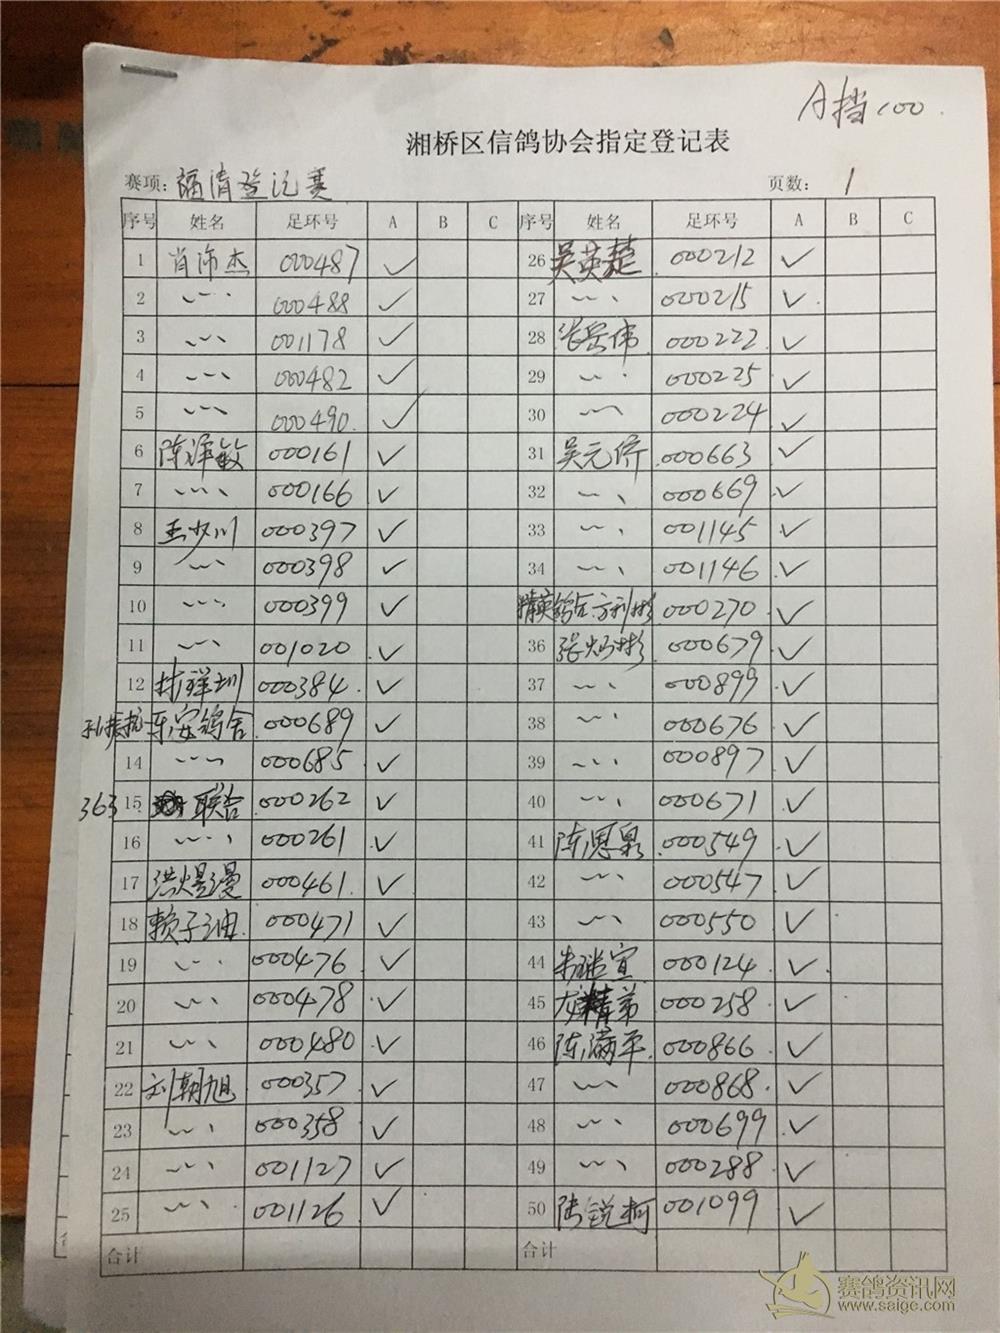 A挡100.
湘桥区信鸽协会指定登记表
赛项: 福清登记赛 页数: 1
序号 姓名 足环号 A B C 序号 姓名 足环号 A B C
1 肖沛杰 000487 ✓ 26 吴英楚 000212 ✓
2 〃 000488 ✓ 27 〃 000215 ✓
3 〃 001178 ✓ 28 张岳伟 000222 ✓
4 〃 000482 ✓ 29 〃 000225 ✓
5 〃 000490 ✓ 30 〃 000224 ✓
6 陈泽敏 000161 ✓ 31 吴元侨 000663 ✓
7 〃 000166 ✓ 32 〃 000669 ✓
8 王少川 000397 ✓ 33 〃 001145 ✓
9 〃 000398 ✓ 34 〃 001146 ✓
10 〃 000399 ✓ 精英鸽舍方利彬 000270 ✓
11 〃 001020 ✓ 36 张灿彬 000679 ✓
12 林祥圳 000384 ✓ 37 〃 000899 ✓
东安鸽舍 000689 ✓ 38 〃 000676 ✓
14 〃 000685 ✓ 39 〃 000897 ✓
363 15 联合 000262 ✓ 40 〃 000671 ✓
16 〃 000261 ✓ 41 陈恩泉 000549 ✓
17 洪煜漫 000461 ✓ 42 〃 000547 ✓
18 赖子迪 000471 ✓ 43 〃 000550 ✓
19 〃 000476 ✓ 44 000124 ✓
20 〃 000478 ✓ 45 000258 ✓
21 〃 000480 ✓ 46 陈满平 000866 ✓
22 刘朝旭 000357 ✓ 47 〃 000868 ✓
23 〃 000358 ✓ 48 〃 000699 ✓
24 〃 001127 ✓ 49 〃 000288 ✓
25 〃 001126 ✓ 50 陆锐柯 001099 ✓
合计 合计
赛鸽资讯网
www.saige.com